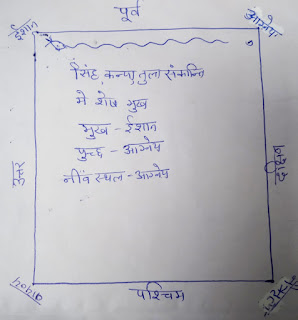 पूर्व
ईशान
आग्नेय
सिंह, कन्या, तुला संक्रान्ति
मे शेष मुख
मुख - ईशान
पुच्छ - आग्नेय
नींव स्थल - आग्नेय
उत्तर
दक्षिण
वायव्य
पश्चिम